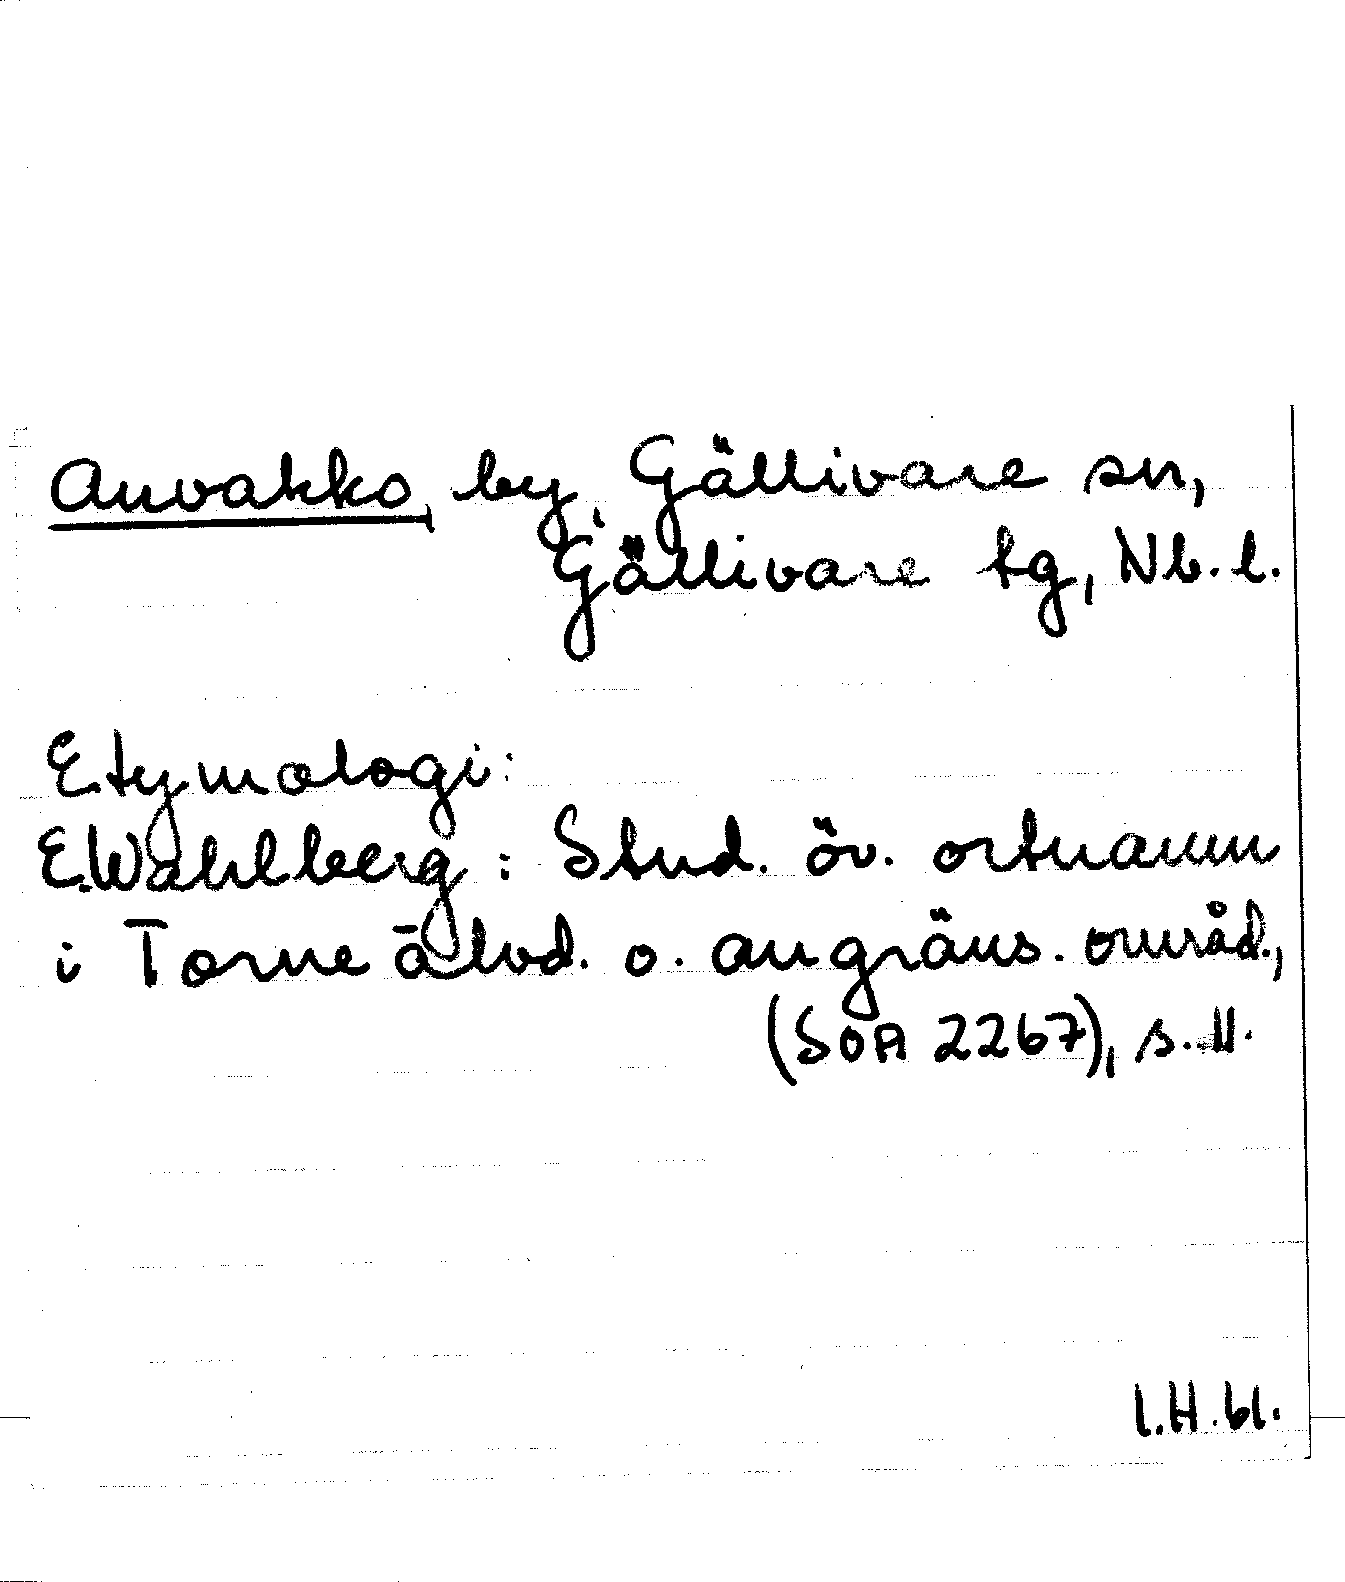 Auvakko, by, Gällivare sn,
Gällivare tg, Nb. l.
Etymologi:
E.Wahlberg: Stud. öv. ortnamn
i Torne älvd. o. angräns. områd.,
(SOA 2267), s. 11.
I.H.61.